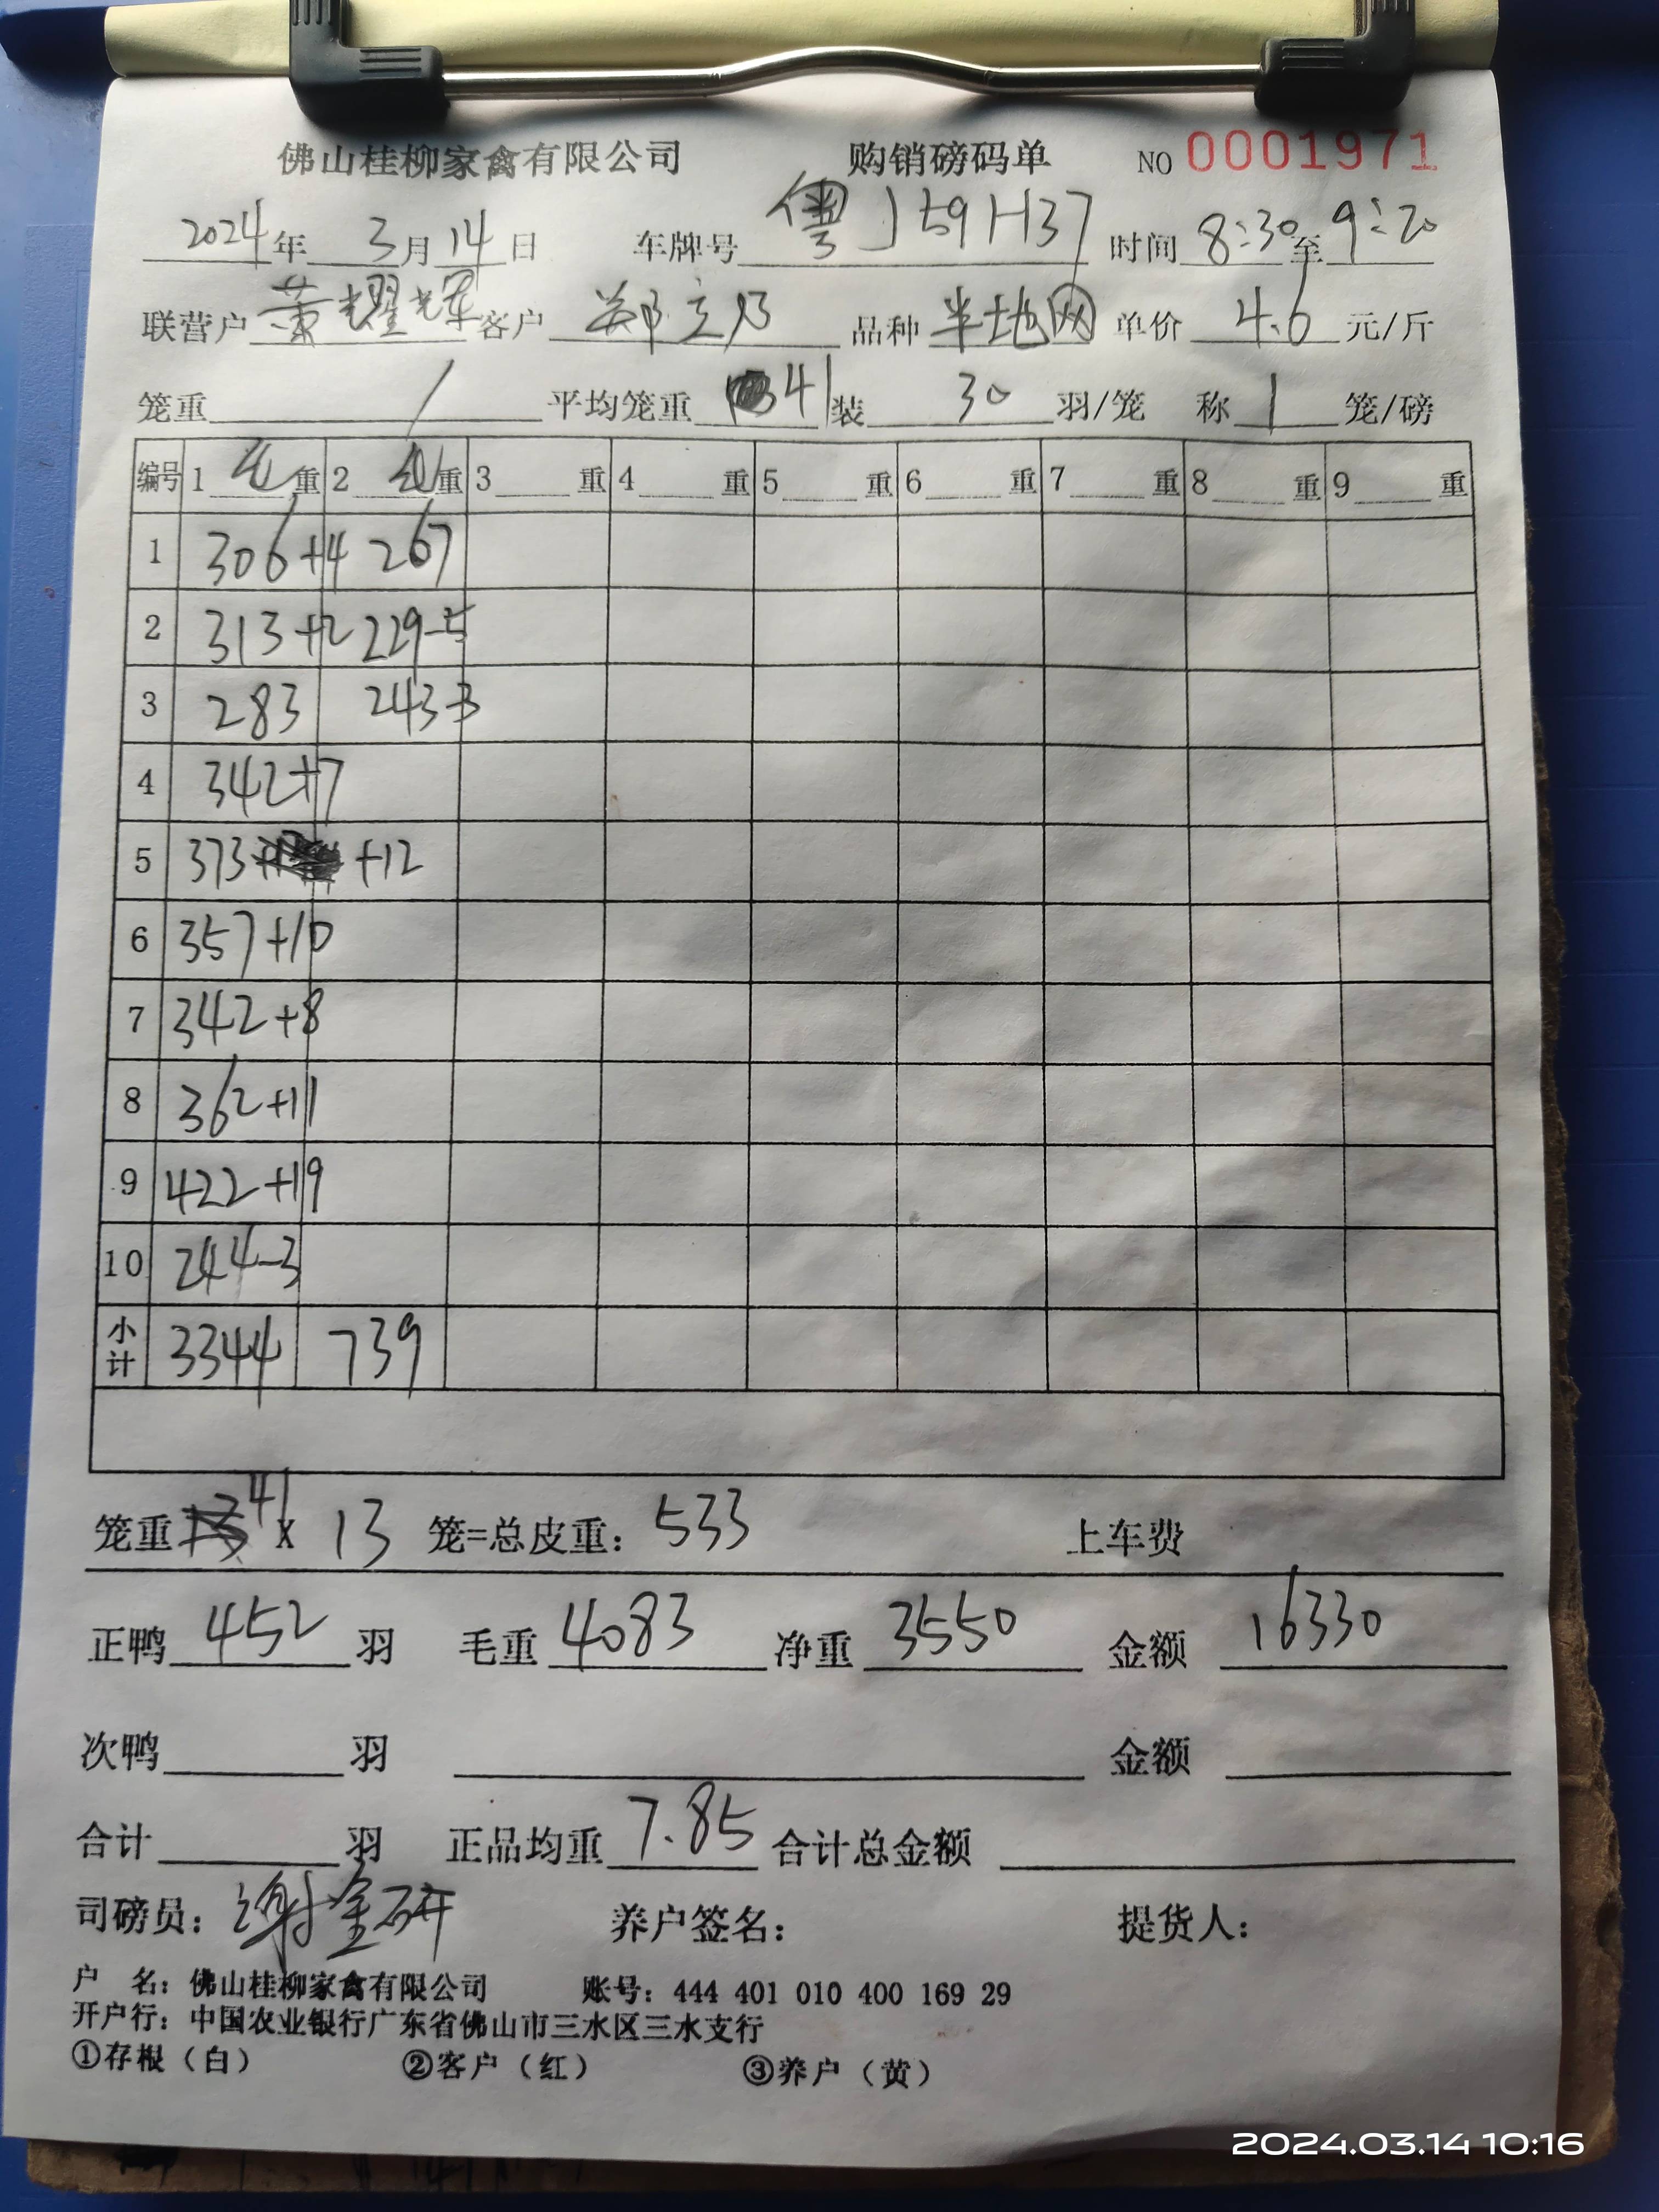 佛山桂柳家禽有限公司 购销磅码单 NO 0001971
2024年 3月14日 车牌号 粤J591H37 时间 8:30至9:20
联营户 黄耀辉 客户 郑立乃 品种 半地网 单价 4.6 元/斤
笼重 / 平均笼重 41 装 30 羽/笼 称 1 笼/磅
编号 1 毛 重 2 重 3 重 4 重 5 重 6 重 7 重 8 重 9 重
1 306+4 267
2 313+2 229-5
3 283 243-3
4 342+7
5 373 +12
6 357+10
7 342+8
8 362+11
9 422+19
10 244-3
小计 3344 739
笼重 41 X 13 笼=总皮重: 533 上车费
正鸭 452 羽 毛重 4083 净重 3550 金额 16330
次鸭 羽 金额
合计 羽 正品均重 7.85 合计总金额
司磅员: 谢金研 养户签名: 提货人:
户 名: 佛山桂柳家禽有限公司 账号: 444 401 010 400 169 29
开户行: 中国农业银行广东省佛山市三水区三水支行
①存根（白） ②客户（红） ③养户（黄）
2024.03.14 10:16